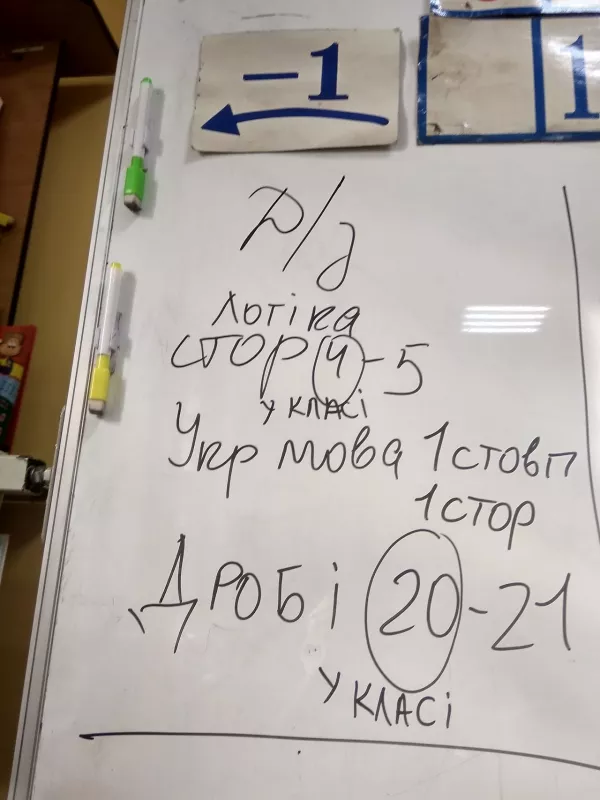 -1
1
Д/з
Логіка
стор 4-5
у класі
Укр мова 1 стовп
1 стор
Дробі 20-21
у класі